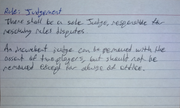 Rule: Judgement
There shall be a sole Judge, responsible for
resolving rules disputes.
An incumbent Judge can be removed with the
assent of two players, but should not be
removed except for abuse of office.